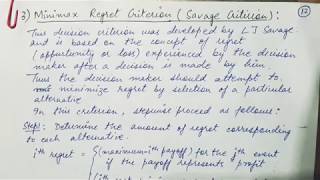 3) Minimax Regret Criterion (Savage Criterion): 12
This decision criterion was developed by L J Savage
and is based on the concept of regret
(opportunity or loss) experienced by the decision
maker after a decision is made by him.
Thus the decision maker should attempt to
minimize regret by selection of a particular
alternative
In this criterion, stepwise proceed as follows:
Step1: Determine the amount of regret corresponding
to each alternative.
ith regret = {(maximum-ith payoff) for the jth event
if the payoff represents profit